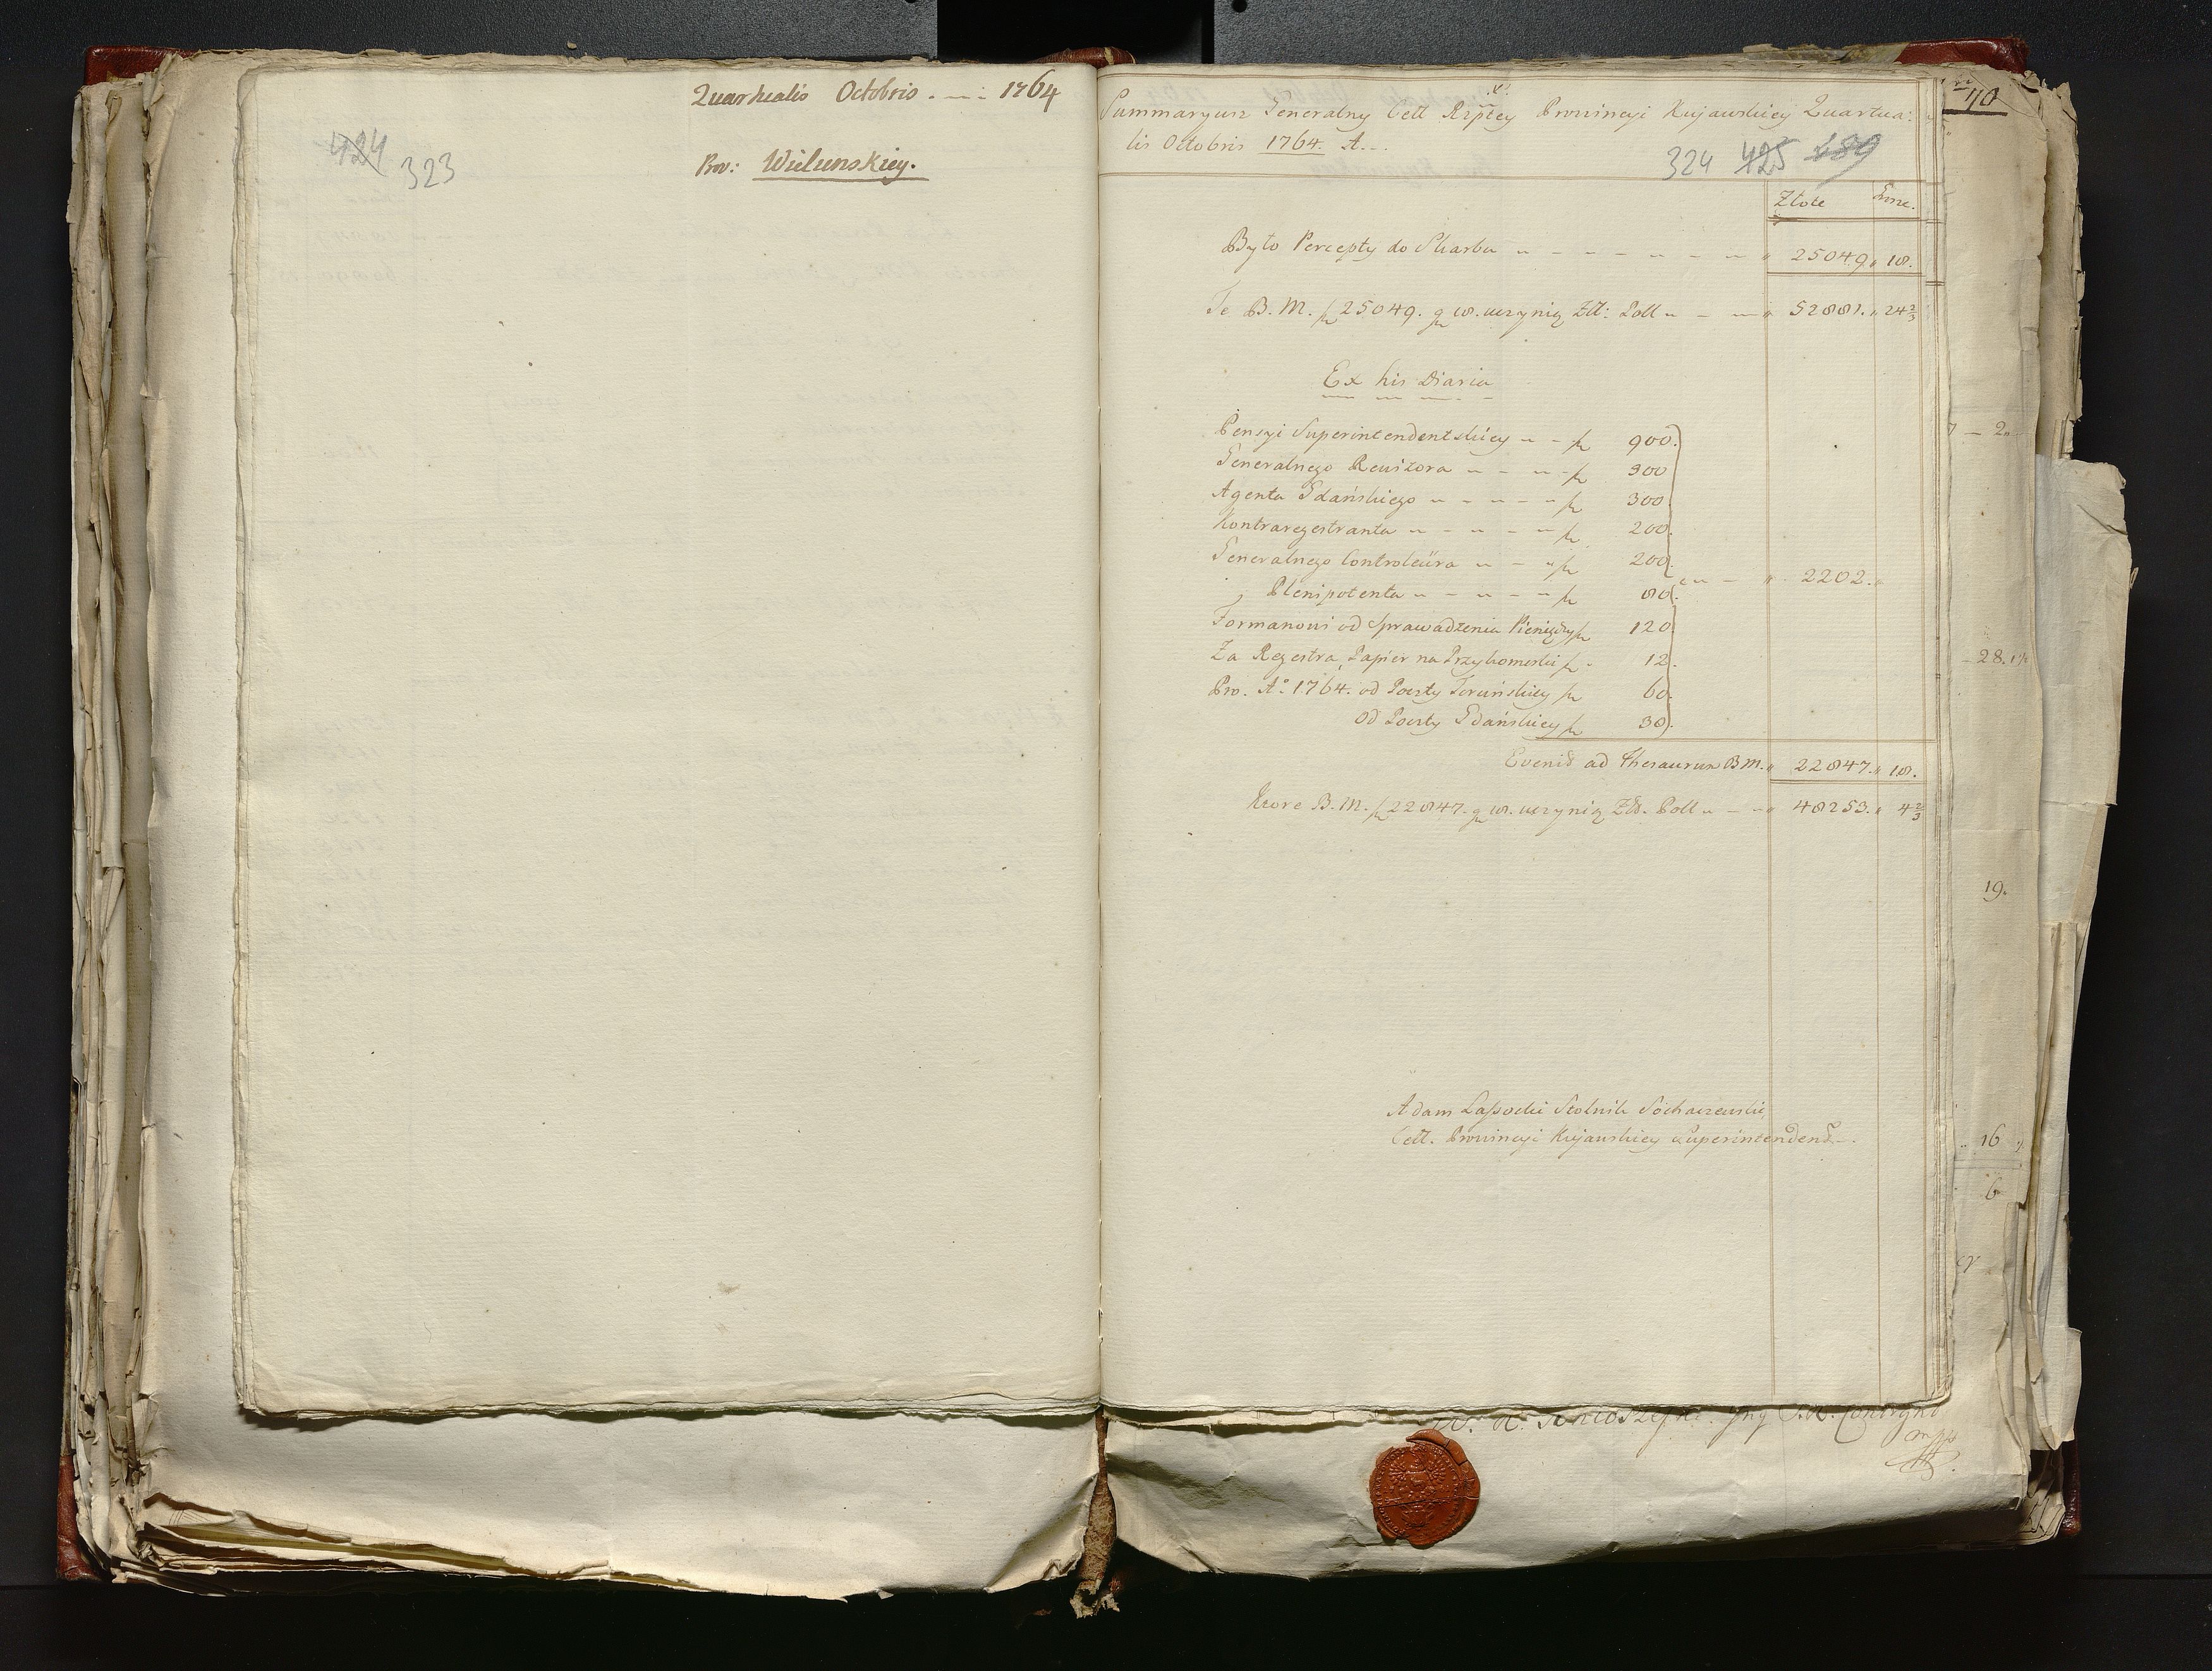 Quartualis Octobris . — : 1764
424 323
Prov: Wielunskiey.
Summaryusz Generalny Cell Rzptey Prowincyi Kujawskiey Quartua:
lis Octobris 1764. A...
324 425 689
Złote Grosz.
Było Percepty do Skarbu 25049 18.
Te B. M. f 25049. g 18. uczynią Złł: Poll 52881. 24 2/3
Ex his Diaria
Pensyi Superintendentskiey f 900.
Generalnego Rewizora f 300
Agenta Gdańskiego f 300.
Kontraregestranta f 200.
Generalnego Controleüra f 200.
j Plenipotenta f 80. 2202.
Formanowi od Sprawadzenia Pieniędzy f 120
Za Regestra, Papier na Przykomorki f 12.
Pro. A° 1764. od Poczty Toruńskiey f 60.
od Poczty Gdańskiey f 30.
Evenit ad Thesaurum B M. 22847. 18.
Ktore B. M. f 22847. g 18. uczynią Złł. Poll 48253. 4 2/3
Adam Lasocki Stolnik Sochaczewski
Cell. Prowincyi Kujawskiey Superintendent
40
2
28.
19.
16
6
mpp